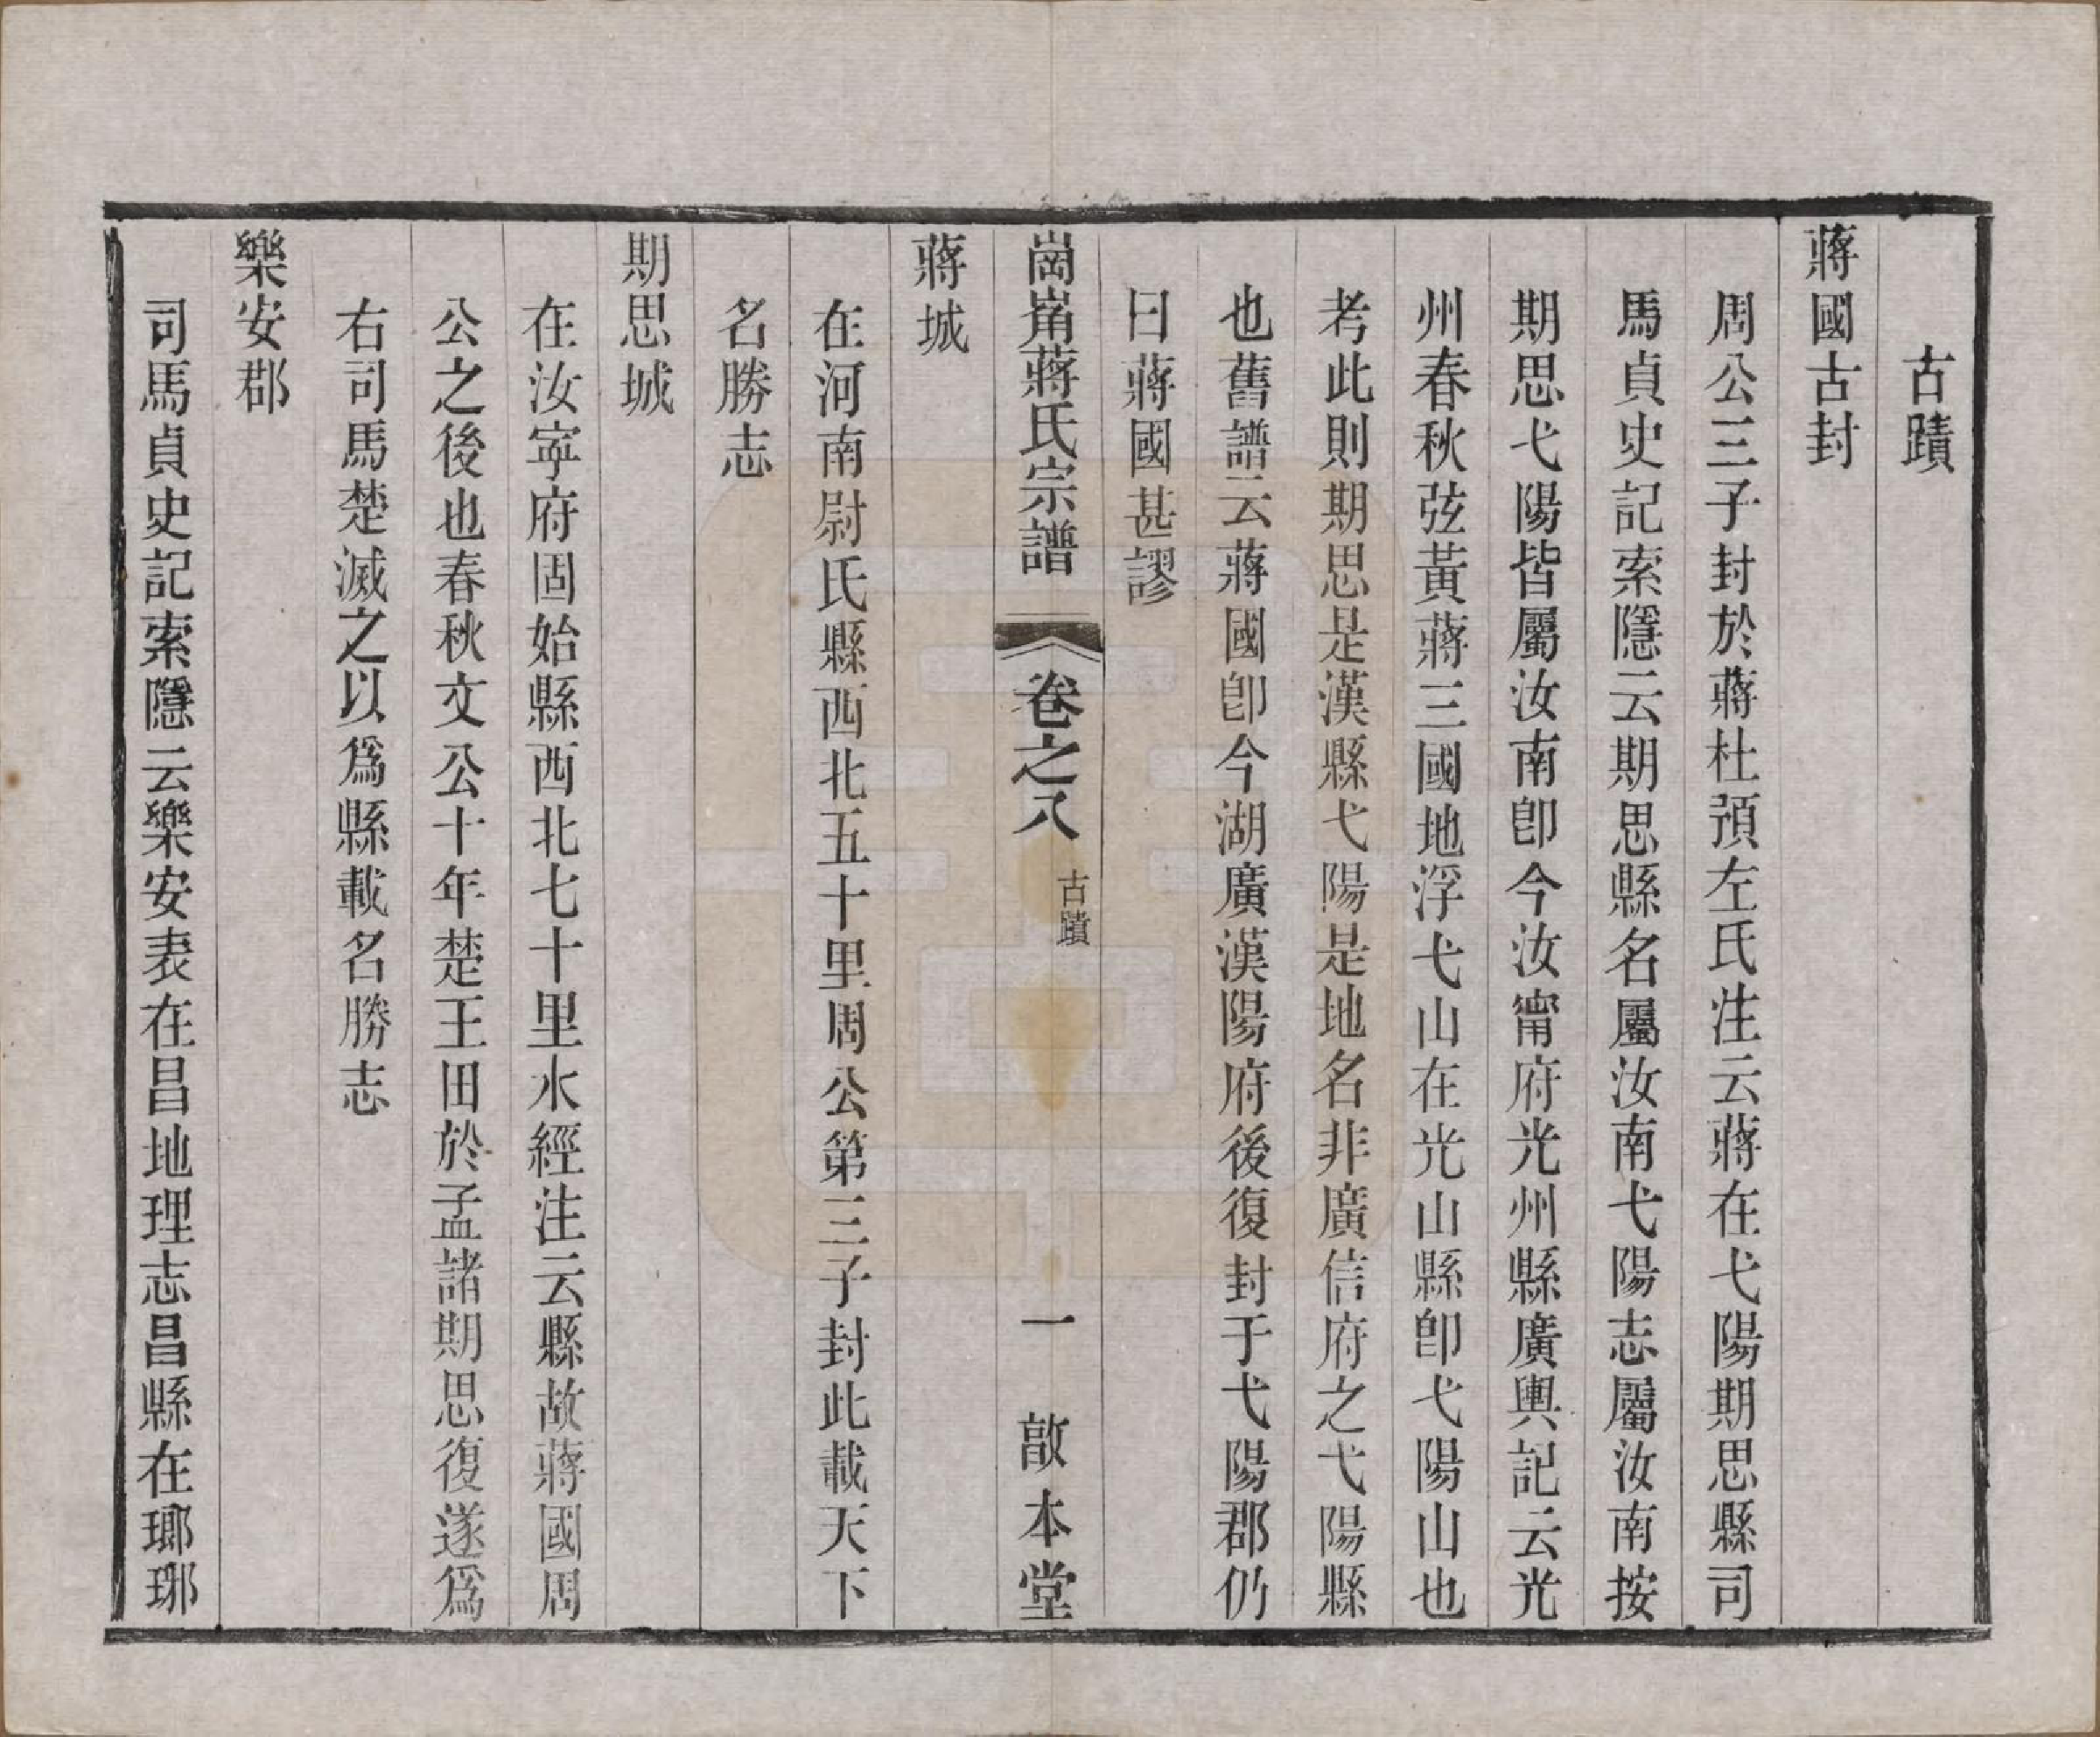 古蹟
蔣國古封
周公三子封於蔣杜預左氏注云蔣在弋陽期思縣司
馬貞史記索隱云期思縣名屬汝南弋陽志屬汝南按
期思弋陽皆屬汝南卽今汝甯府光州縣廣輿記云光
州春秋弦黃蔣三國地浮弋山在光山縣卽弋陽山也
考此則期思是漢縣弋陽是地名非廣信府之弋陽縣
也舊譜云蔣國卽今湖廣漢陽府後復封于弋陽郡仍
曰蔣國甚謬
蔣氏宗譜 卷之八 古蹟 一 敆本堂
蔣城
在河南尉氏縣西北五十里周公第三子封此載天下
名勝志
期思城
在汝寧府固始縣西北七十里水經注云縣故蔣國周
公之後也春秋文公十年楚王田於孟諸期思復遂爲
右司馬楚滅之以爲縣載名勝志
樂安郡
司馬貞史記索隱云樂安表在昌地理志昌縣在瑯琊